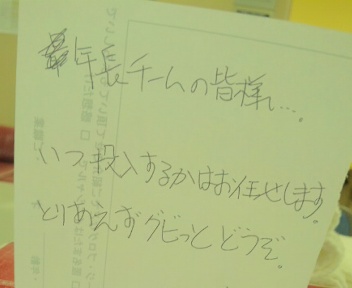 最年長チームの皆様、…。
いつ投入するかはお任せします。
とりあえずグビっとどうぞ。